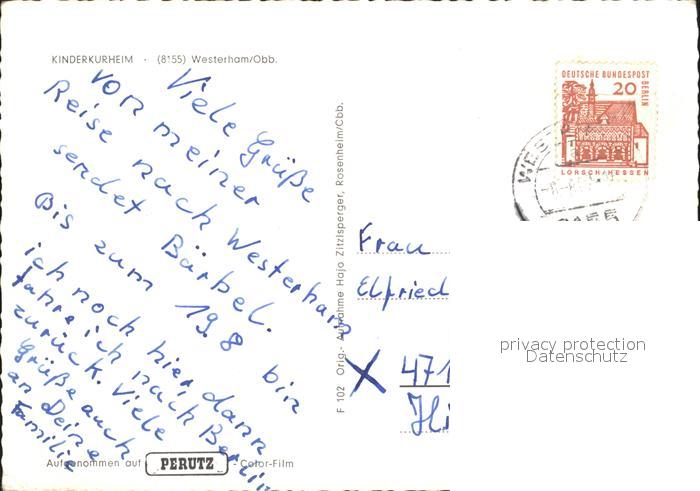 KINDERKURHEIM · (8155) Westerham/Obb.
Viele Grüße
von meiner
Reise nach Westerham
sendet Bärbel.
Bis zum 19.8 bin
ich noch hier dann
fahre ich nach Berlin
zurück. Viele
Grüße auch
an Deine
Familie
Aufgenommen auf PERUTZ - Color-Film
F 102 Orig.- Aufnahme Hajo Zitzlsperger, Rosenheim/Obb.
DEUTSCHE BUNDESPOST
BERLIN
20
LORSCH/HESSEN
Frau
Elfried
471
Hi
privacy protection
Datenschutz